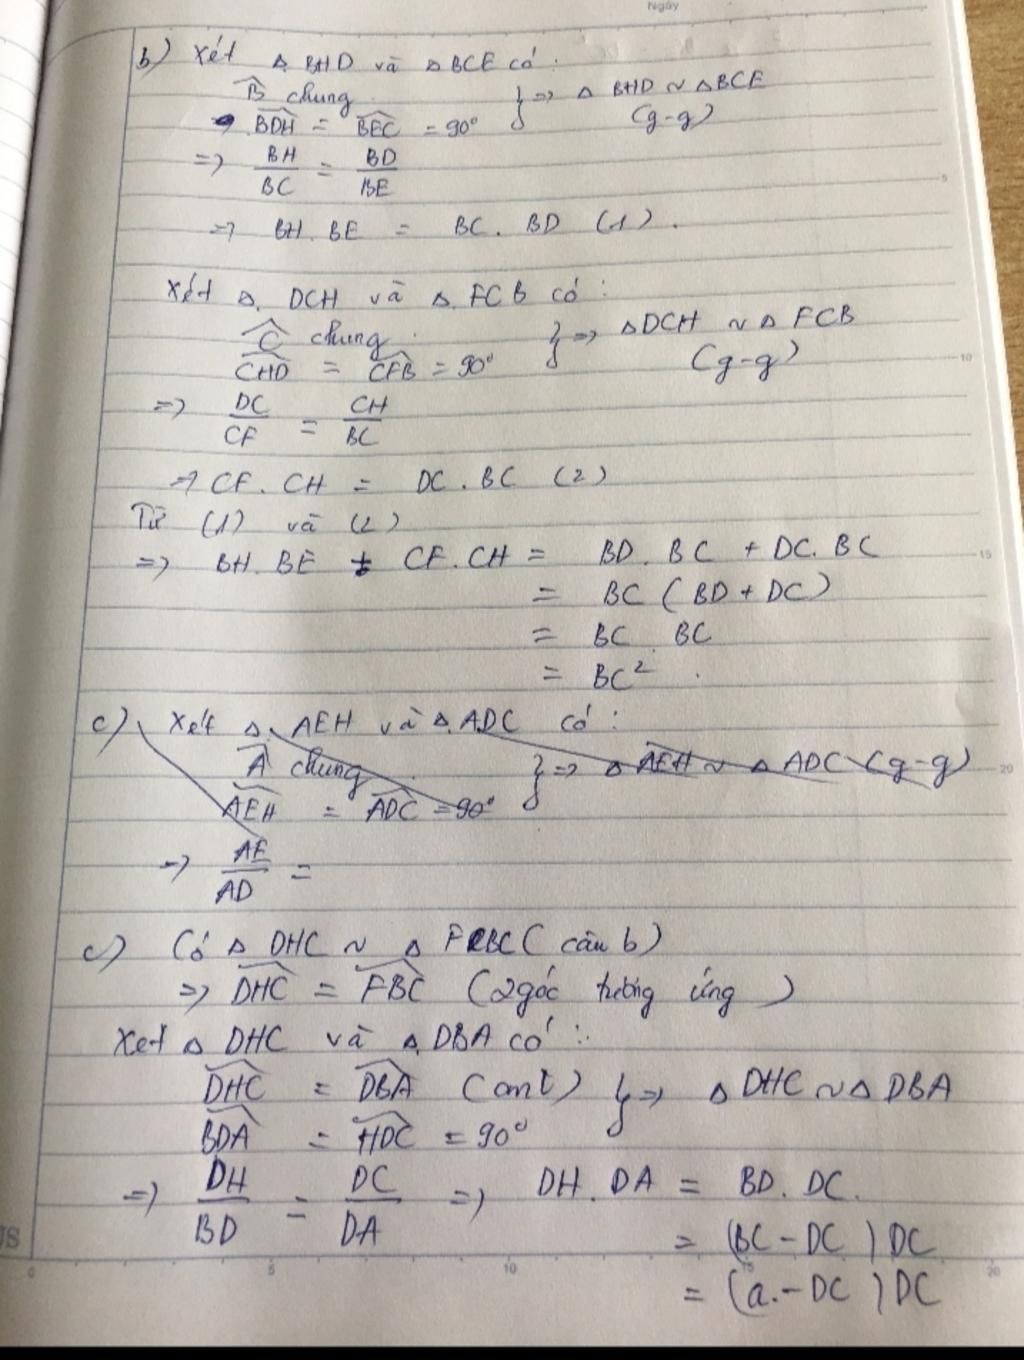 Ngày
b) Xét △ BHD và △ BCE có :
B̂ chung } => △ BHD ~ △BCE
BDH = BEC = 90° (g-g)
=> BH/BC = BD/BE
=> BH. BE = BC. BD (1).
Xét △ DCH và △ FCB có :
Ĉ chung } => △DCH ~ △ FCB
CHD = CFB = 90° (g-g)
=> DC/CF = CH/BC
=> CF. CH = DC. BC (2)
Từ (1) và (2)
=> BH. BE + CF. CH = BD. BC + DC. BC
= BC (BD + DC)
= BC . BC
= BC² .
c) Xét △ AEH và △ ADC có :
Â chung } => △ AEH ~ △ ADC (g-g)
AEH = ADC = 90°
=> AE/AD =
c) Có △ DHC ~ △ FBC ( câu b)
=> DHC = FBC (2 góc tương ứng )
Xét △ DHC và △ DBA có :
DHC = DBA (cmt) } => △ DHC ~ △ DBA
BDA = HDC = 90°
=> DH/BD = DC/DA => DH. DA = BD. DC.
= (BC - DC ) DC
= (a.- DC ) DC
5
10
15
20
0 5 10 15 20